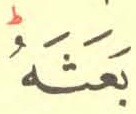 بَعَثَهُؕ